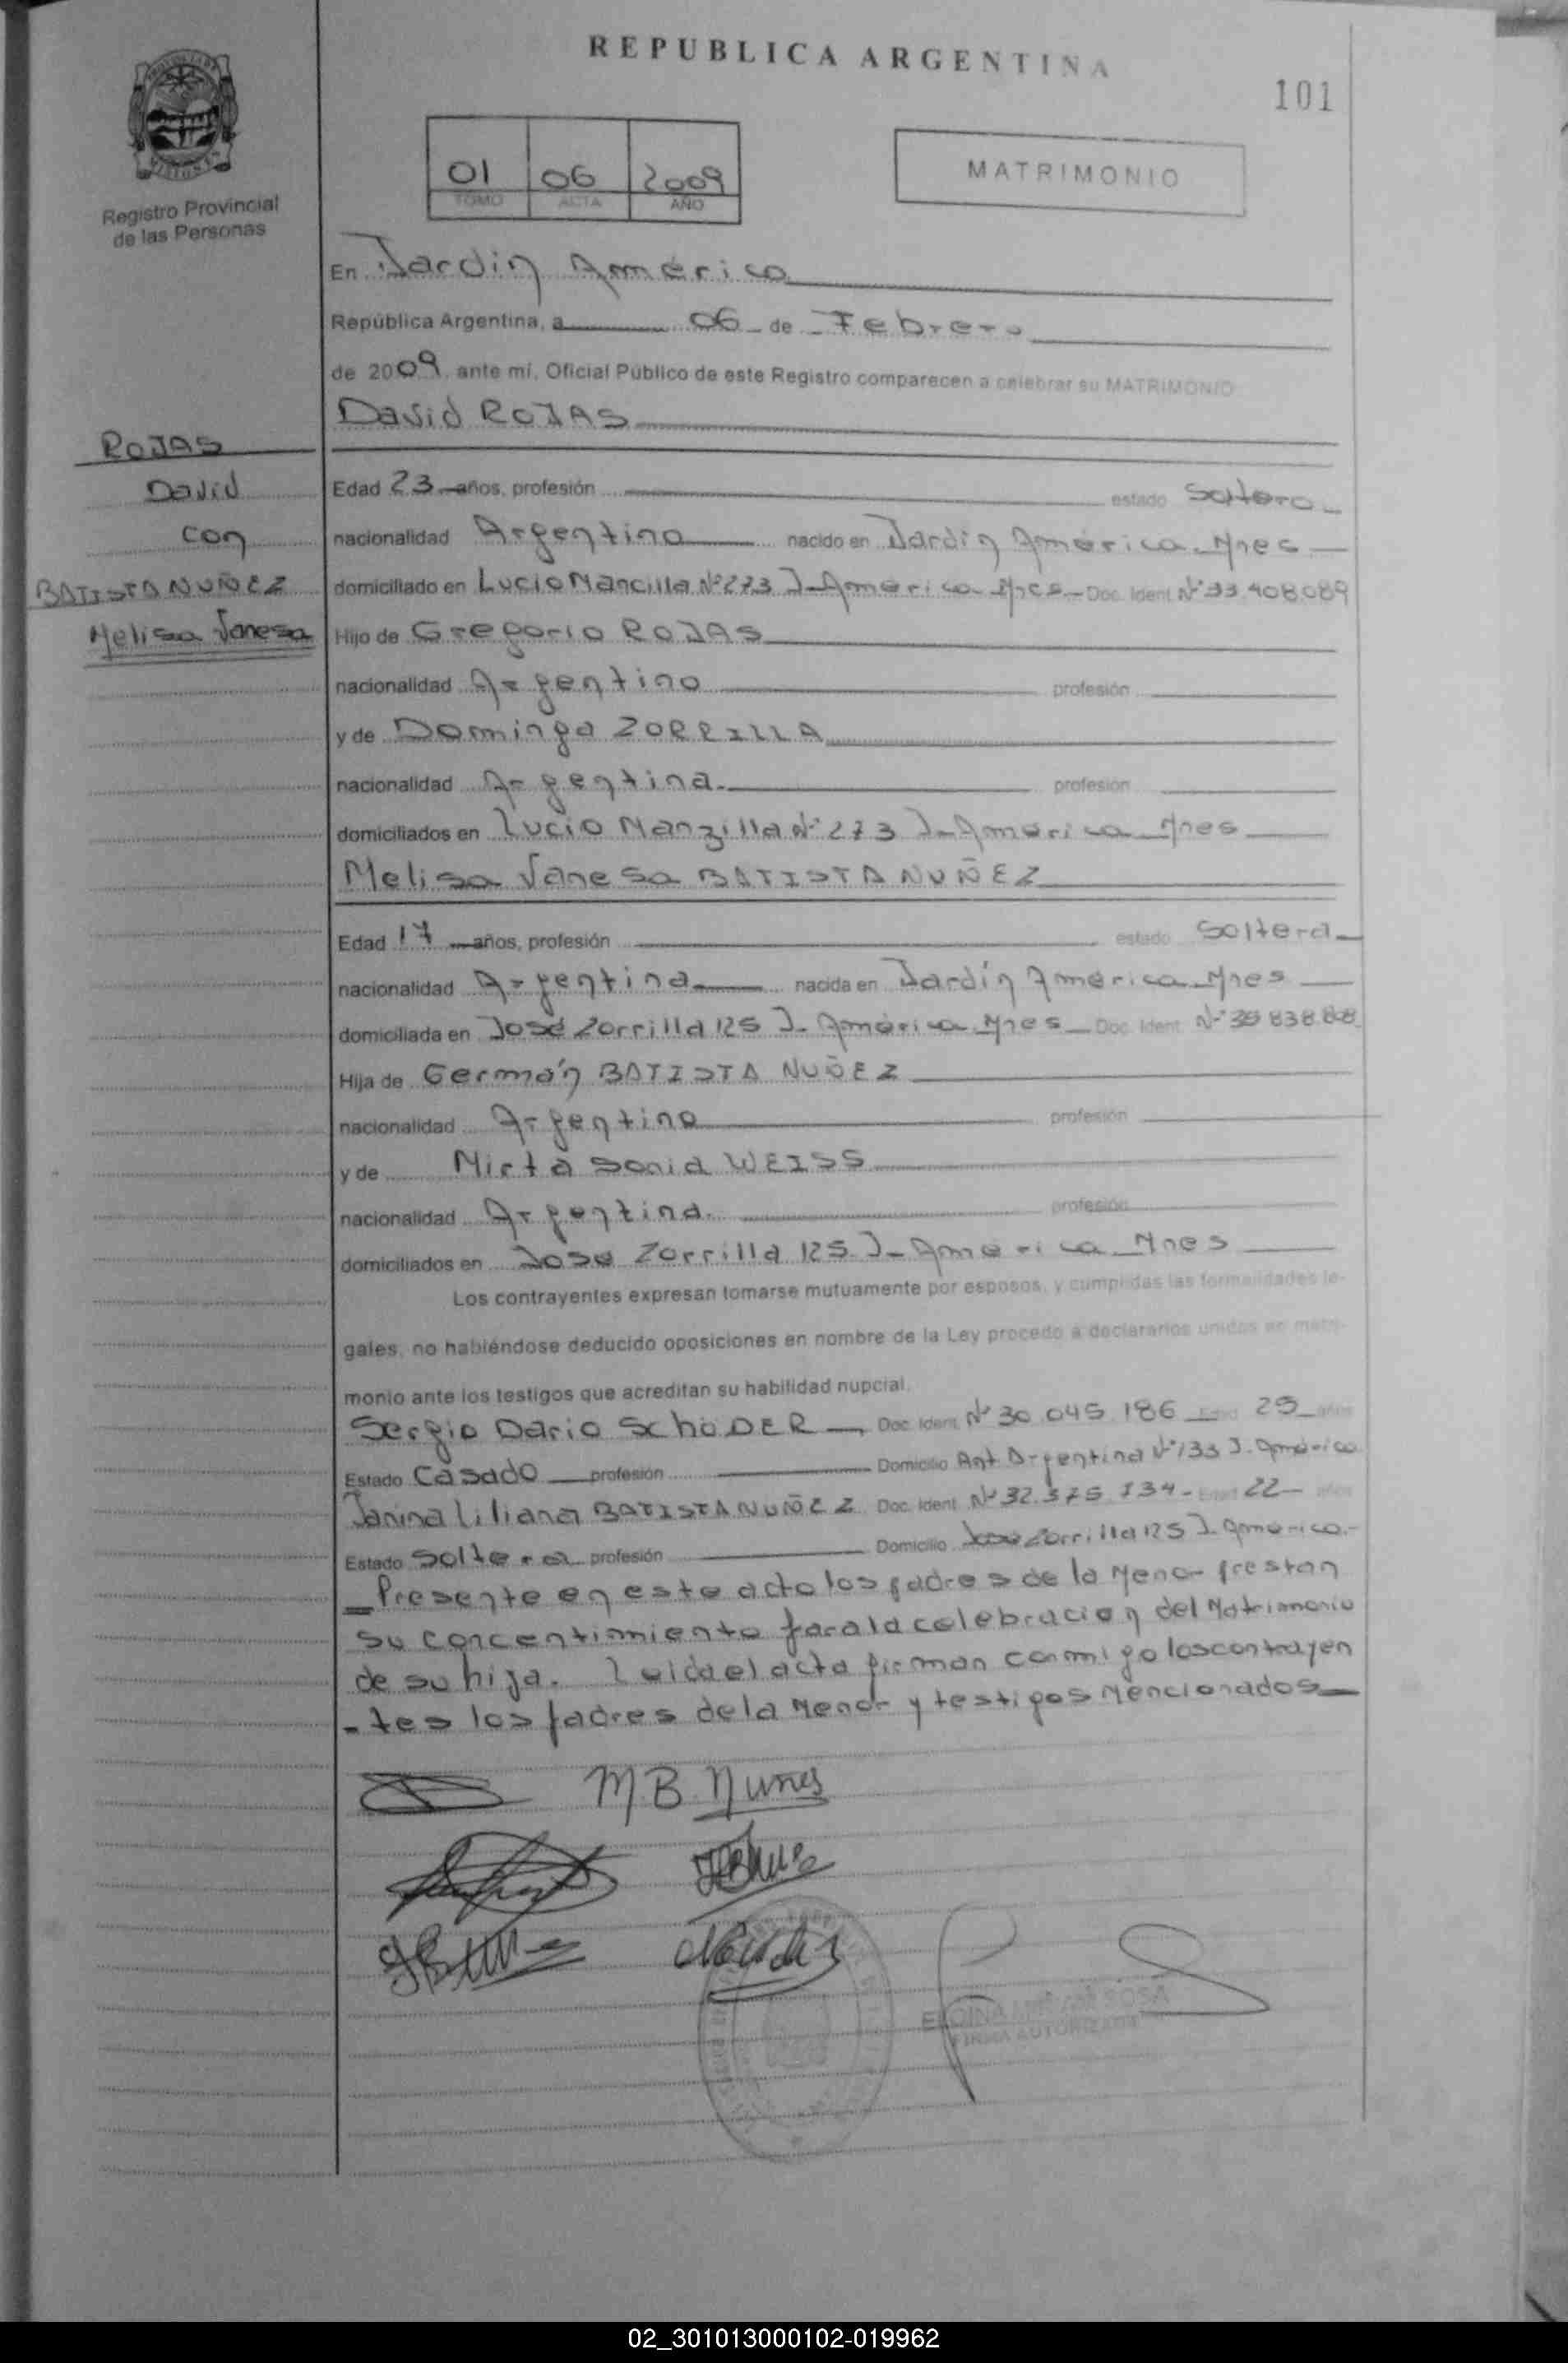 REPUBLICA ARGENTINA
101
01 06 2009
TOMO ACTA AÑO
MATRIMONIO
Registro Provincial
de las Personas
En Jardín América
República Argentina, a 06 de Febrero
de 2009 ante mí, Oficial Público de este Registro comparecen a celebrar su MATRIMONIO
David ROJAS
ROJAS
David
con
BATISTA NUÑEZ
Melisa Vanesa
Edad 23 años, profesión estado Soltero
nacionalidad Argentino nacido en Jardín América Mnes
domiciliado en Lucio Mancilla Nº 273 J. América Mnes Doc. Ident Nº 33.408.089
Hijo de Gregorio ROJAS
nacionalidad Argentino profesión
y de Dominga ZORRILLA
nacionalidad Argentina profesión
domiciliados en Lucio Manzilla Nº 273 J. América Mnes
Melisa Vanesa BATISTA NUÑEZ
Edad 17 años, profesión estado Soltera
nacionalidad Argentina nacida en Jardín América Mnes
domiciliada en José Zorrilla 125 J. América Mnes Doc. Ident. Nº
Hija de Germán BATISTA NUÑEZ
nacionalidad Argentino profesión
y de Mirta Sonia WEISS
nacionalidad Argentina profesión
domiciliados en José Zorrilla 125 J. América Mnes
Los contrayentes expresan tomarse mutuamente por esposos, y cumplidas las formalidades le-
gales, no habiéndose deducido oposiciones en nombre de la Ley procedo a declararlos unidos en matri-
monio ante los testigos que acreditan su habilidad nupcial.
Sergio Dario SchÖDER Doc. Ident. Nº 30.045.186 Edad 25 años
Estado Casado profesión Domicilio Ant. Argentina Nº 133 J. América
Janina Liliana BATISTA NUÑEZ Doc. Ident. Nº 32.375.134 Edad 22 años
Estado Soltera profesión Domicilio José Zorrilla 125 J. América
Presente en este acto los padres de la Menor prestan
su concentimiento para la celebración del Matrimonio
de su hija. Leida el acta firman conmigo los contrayen
-tes los padres de la Menor y testigos Mencionados
M.B. Nuñes
FIRMA AUTORIZADA
02_301013000102-019962